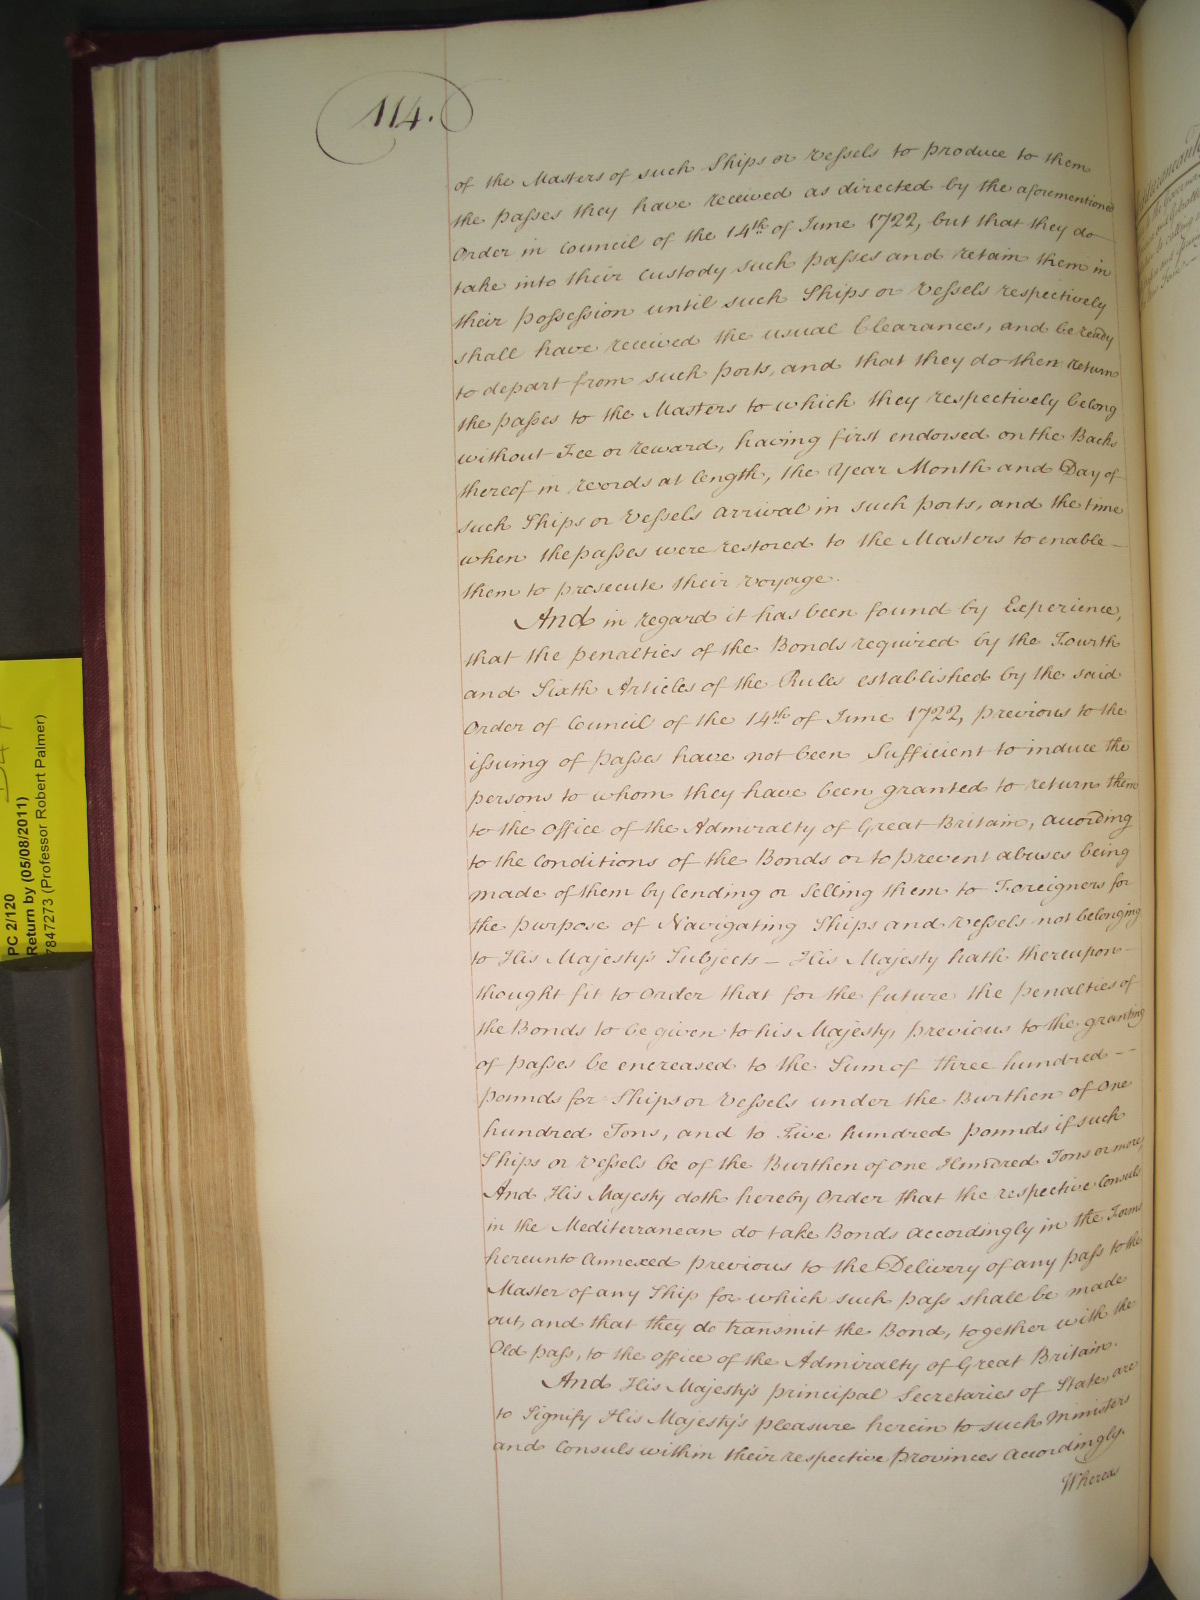 114.
of the Masters of such Ships or Vessels to produce to them
the passes they have received as directed by the aforementioned
Order in Council of the 14th of June 1722, but that they do
take into their custody such passes and retain them in
their possession until such Ships or Vessels respectively
shall have received the usual Clearances, and be ready
to depart from such ports, and that they do then return
the passes to the Masters to which they respectively belong
without Fee or reward, having first endorsed on the Backs
thereof in words at length, the Year Month and Day of
such Ships or Vessels arrival in such ports, and the time
when the passes were restored to the Masters to enable
them to prosecute their voyage.
And in regard it has been found by Experience,
that the penalties of the Bonds required by the Fourth
and Sixth Articles of the Rules established by the said
Order of Council of the 14th of June 1722, previous to the
issuing of passes have not been Sufficient to induce the
persons to whom they have been granted to return them
to the office of the Admiralty of Great Britain, according
to the Conditions of the Bonds or to prevent abuses being
made of them by lending or Selling them to Foreigners for
the purpose of Navigating Ships and Vessels not belonging
to His Majesty's Subjects – His Majesty hath thereupon
thought fit to Order that for the future the penalties of
the Bonds to be given to his Majesty, previous to the granting
of passes be encreased to the Sum of three hundred
pounds for Ships or Vessels under the Burthen of One
hundred Tons, and to Five hundred pounds if such
Ships or Vessels be of the Burthen of One Hundred Tons or more,
And His Majesty doth hereby Order that the respective Consuls
in the Mediterranean do take Bonds accordingly in the Forms
hereunto Annexed previous to the Delivery of any pass to the
Master of any Ship for which such pass shall be made
out, and that they do transmit the Bond, together with the
Old pass, to the office of the Admiralty of Great Britain.
And His Majesty's principal Secretaries of State, are
to Signify His Majesty's pleasure herein to such Ministers
and Consuls within their respective provinces accordingly.
Whereas
PC 2/120
Return by (05/08/2011)
7847273 (Professor Robert Palmer)